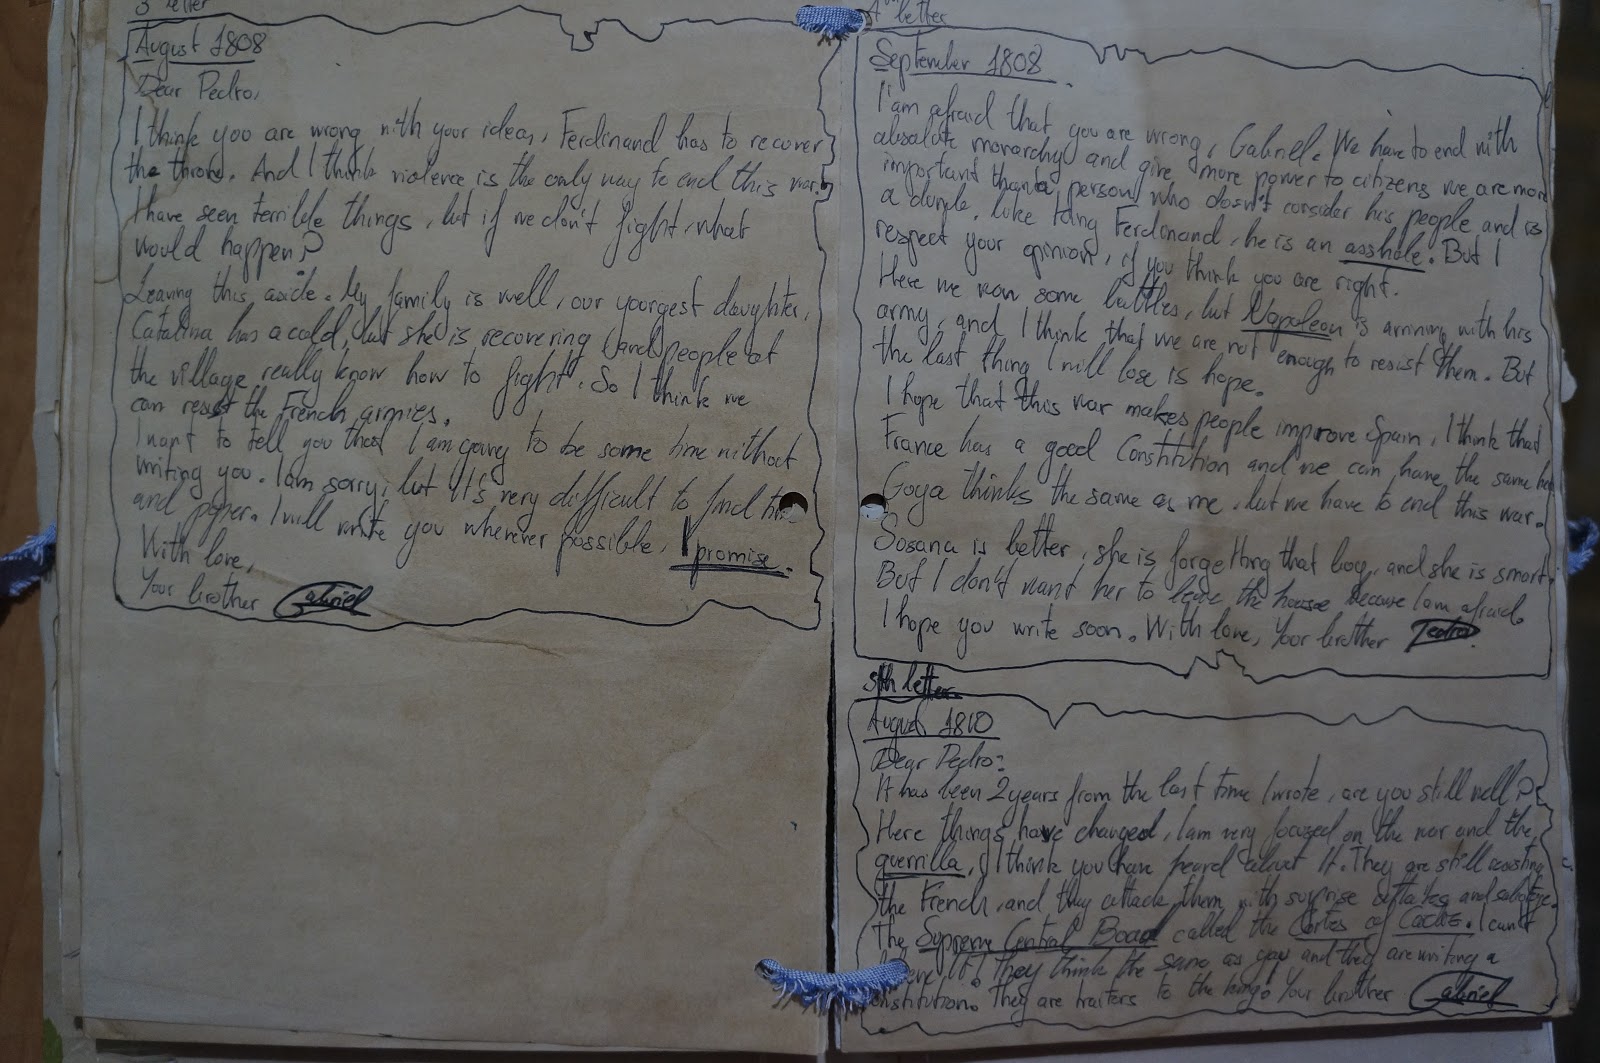 3 letter
August 1808
Dear Pedro,
I think you are wrong with your ideas, Ferdinand has to recover
the throne. And I think violence is the only way to end this war.
I have seen terrible things, but if we don't fight, what
would happen?
Leaving this aside. My family is well, our yourgest daughter,
Catalina has a cold, but she is recovering and people at
the village really know how to fight. So I think we
can resist the French armies.
I want to tell you that I am going to be some time without
writing you. I am sorry, but it's very difficult to find
and paper. I will write you whenever possible, I promise.
With love,
Your brother Gabriel
4th letter
September 1808
I am afraid that you are wrong, Gabriel. We have to end with
absolute monarchy and give more power to citizens we are more
important than a person who doesn't consider his people and is
a dumb, like King Ferdinand, he is an asshole. But I
respect your opinion, if you think you are right.
Here we won some battles, but Napoleon is arriving with his
army, and I think that we are not enough to resist them. But
the last thing I will lose is hope.
I hope that this war makes people improve Spain, I think that
France has a good Constitution and we can have the same here
Goya thinks the same as me, but we have to end this war.
Sosana is better, she is forgetting that boy, and she is smart.
But I don't want her to leave the house because I am afraid.
I hope you write soon. With love, Your brother Pedro
5th letter
August 1810
Dear Pedro:
It has been 2 years from the last time I wrote, are you still well?
Here things have changed, I am very focused on the war and the
guerrilla, I think you have heard about it. They are still resisting
the French, and they attack them with surprise attakes and sabotage.
The Supreme Central Board called the Cortes of Cadiz. I can't
believe it! They think the same as you and they are writing a
constitution. They are traitors to the king. Your brother Gabriel